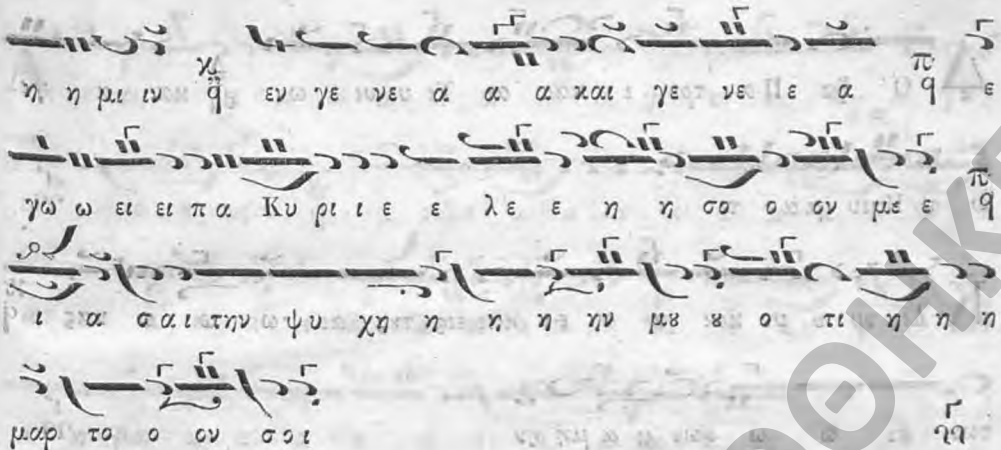 η η μι ιν ϗ ϥ εν γε νεε α α α και γε νεε ε α π ϥ ε
γω ω ει ει π α Κυ ρι ι ε ε λε ε η η σο ο ον με ε π ϥ
ι α σαι την ψυ χη η η η ην μου ου ο τι η η η
μαρ το ο ον σοι
ΟΘΗΚ